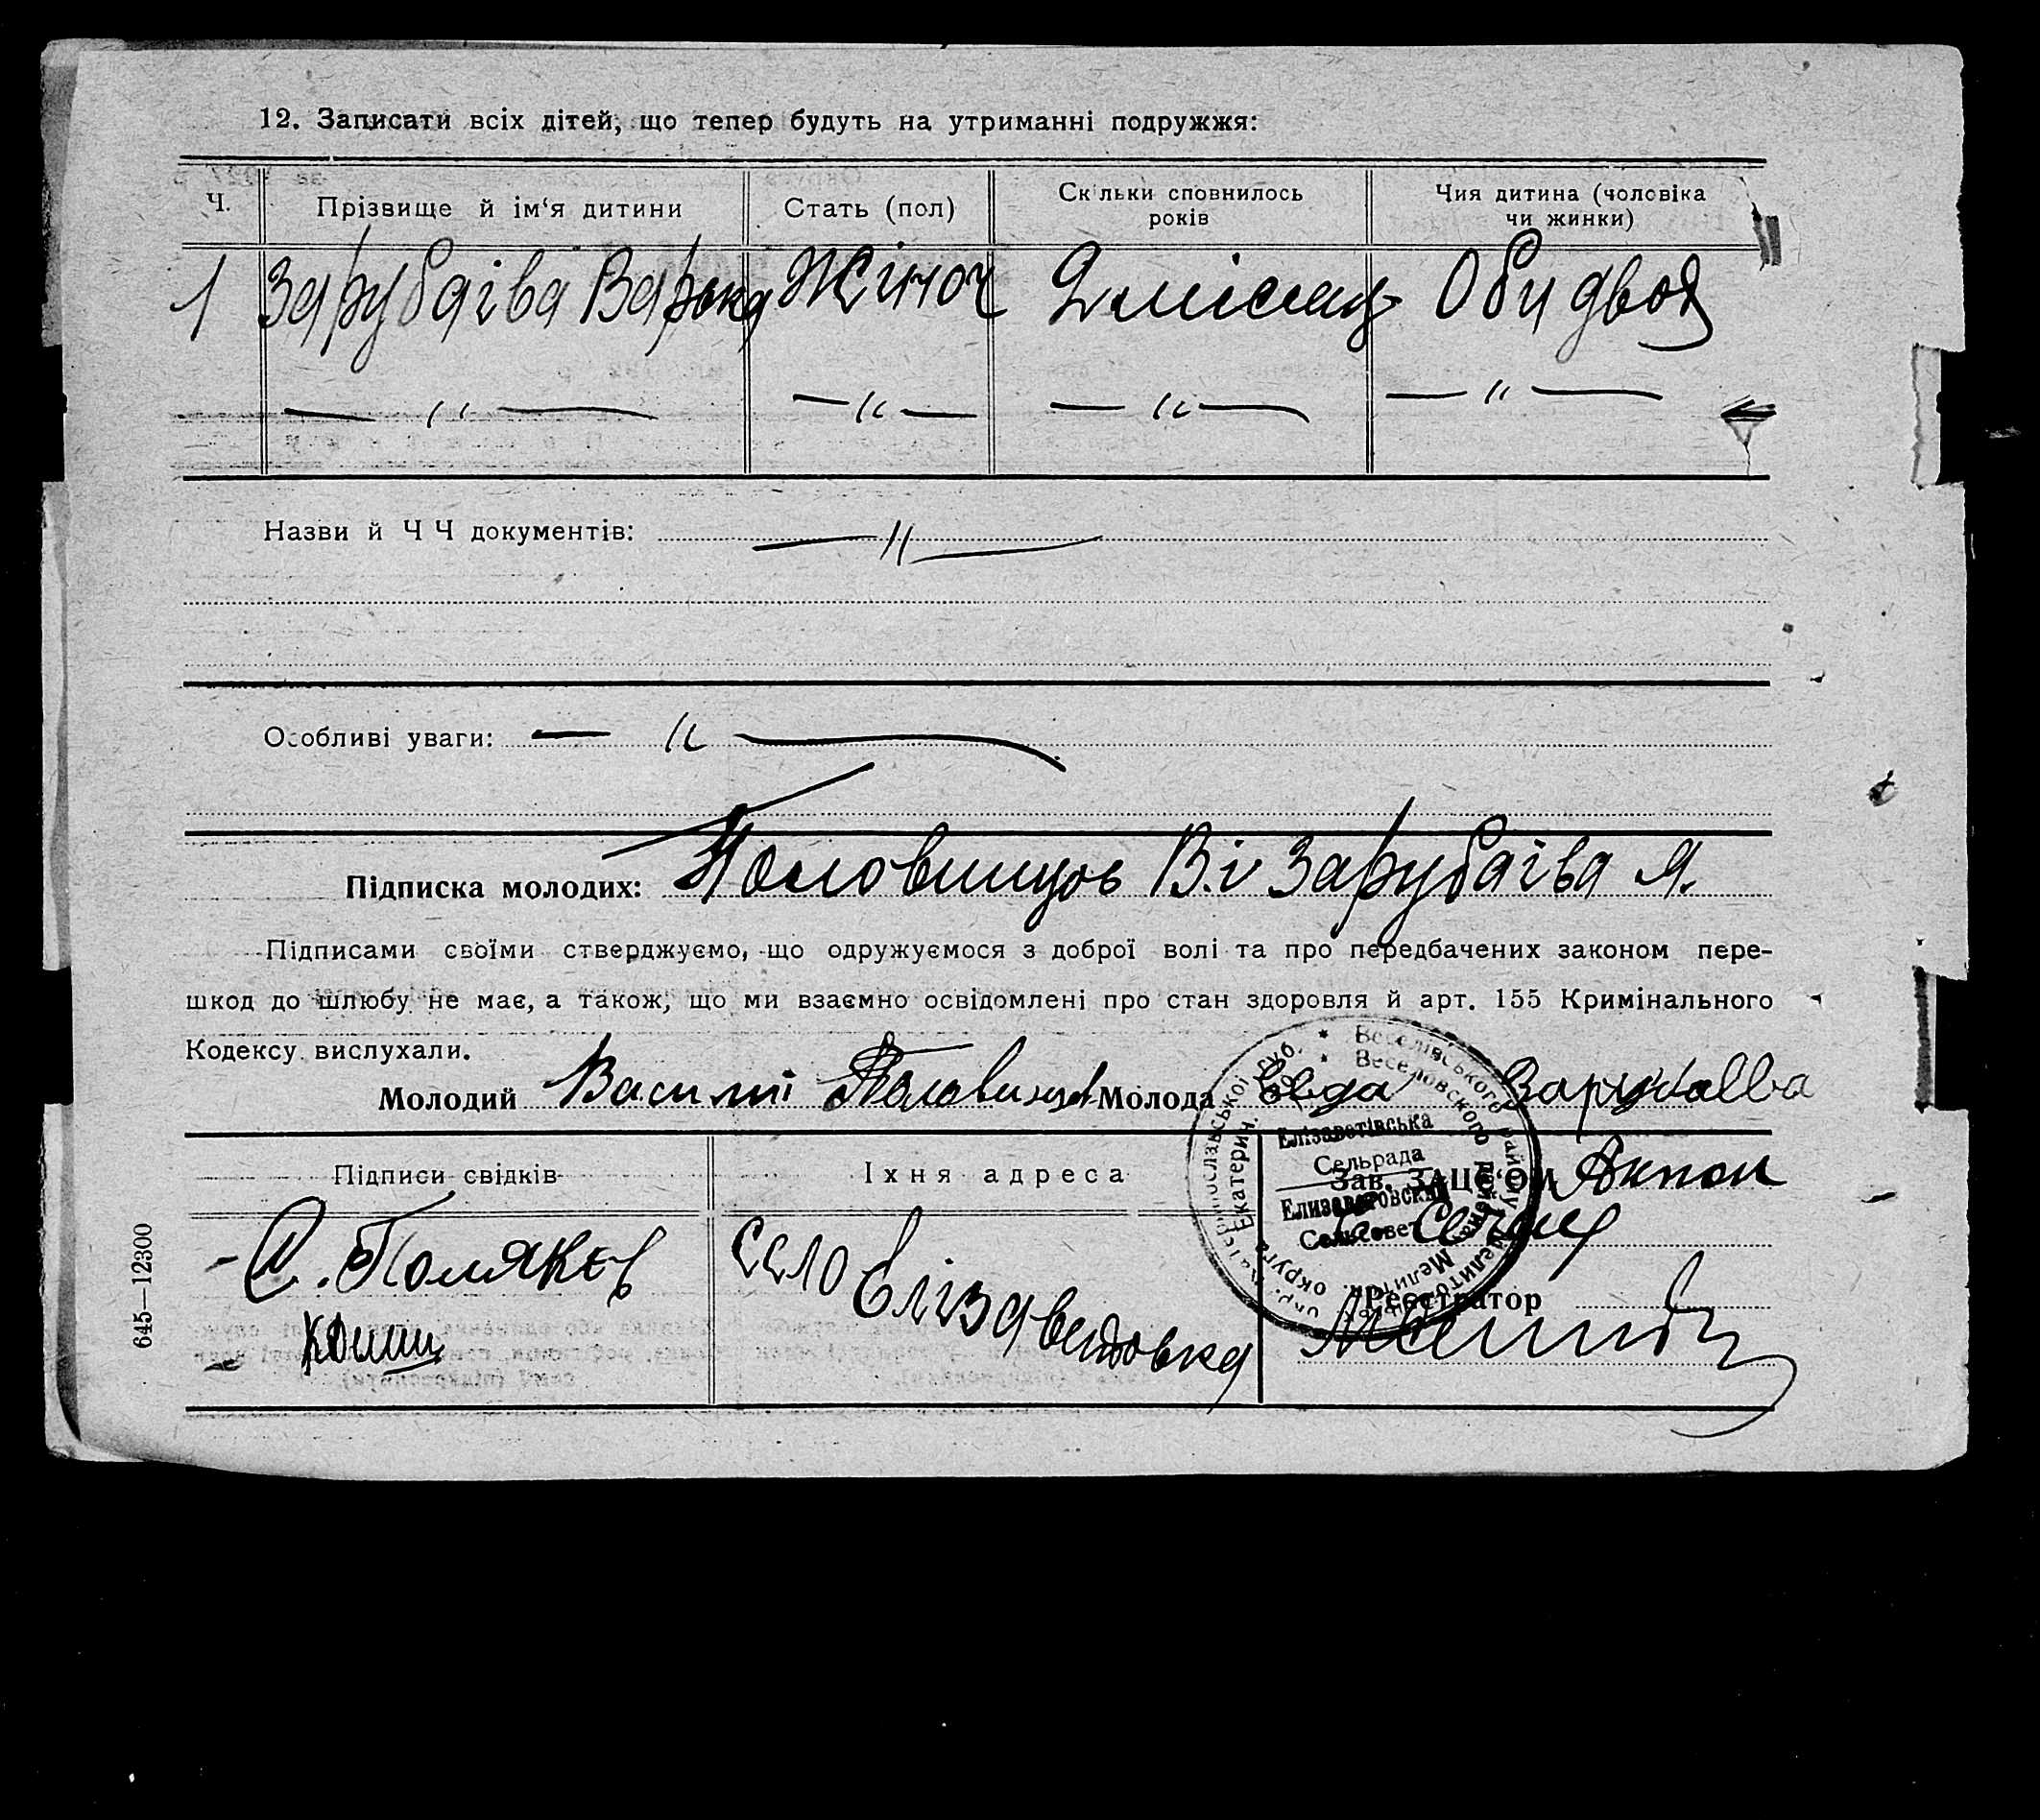 12. Записати всіх дітей, що тепер будуть на утриманні подружжя:
Ч. Прізвище й ім'я дитини Стать (пол) Скільки сповнилось років Чия дитина (чоловіка чи жинки)
1 Зарубаіва Варька Жіноч 2 місяця Обидвоя
— " — — " — — " — — " —
Назви й Ч Ч документів: — " —
Особливі уваги: — " —
Підписка молодих: Половинцов В. і Зарубаіва Я.
Підписами своїми стверджуємо, що одружуємося з доброї волі та про передбачених законом пере-
шкод до шлюбу не має, а також, що ми взаємно освідомлені про стан здоровля й арт. 155 Кримінального
Кодексу вислухали.
Молодий Василі Половинцов Молода Зарубаева
Підписи свідків Їхня адреса Зав. ЗАЦС'ом
С. Поляков село Елізаветовка
Реєстратор
Веселівського району
Веселовского района
Елізаветівська
Сельрада
Елизаветовский
Сельсовет
645—12300